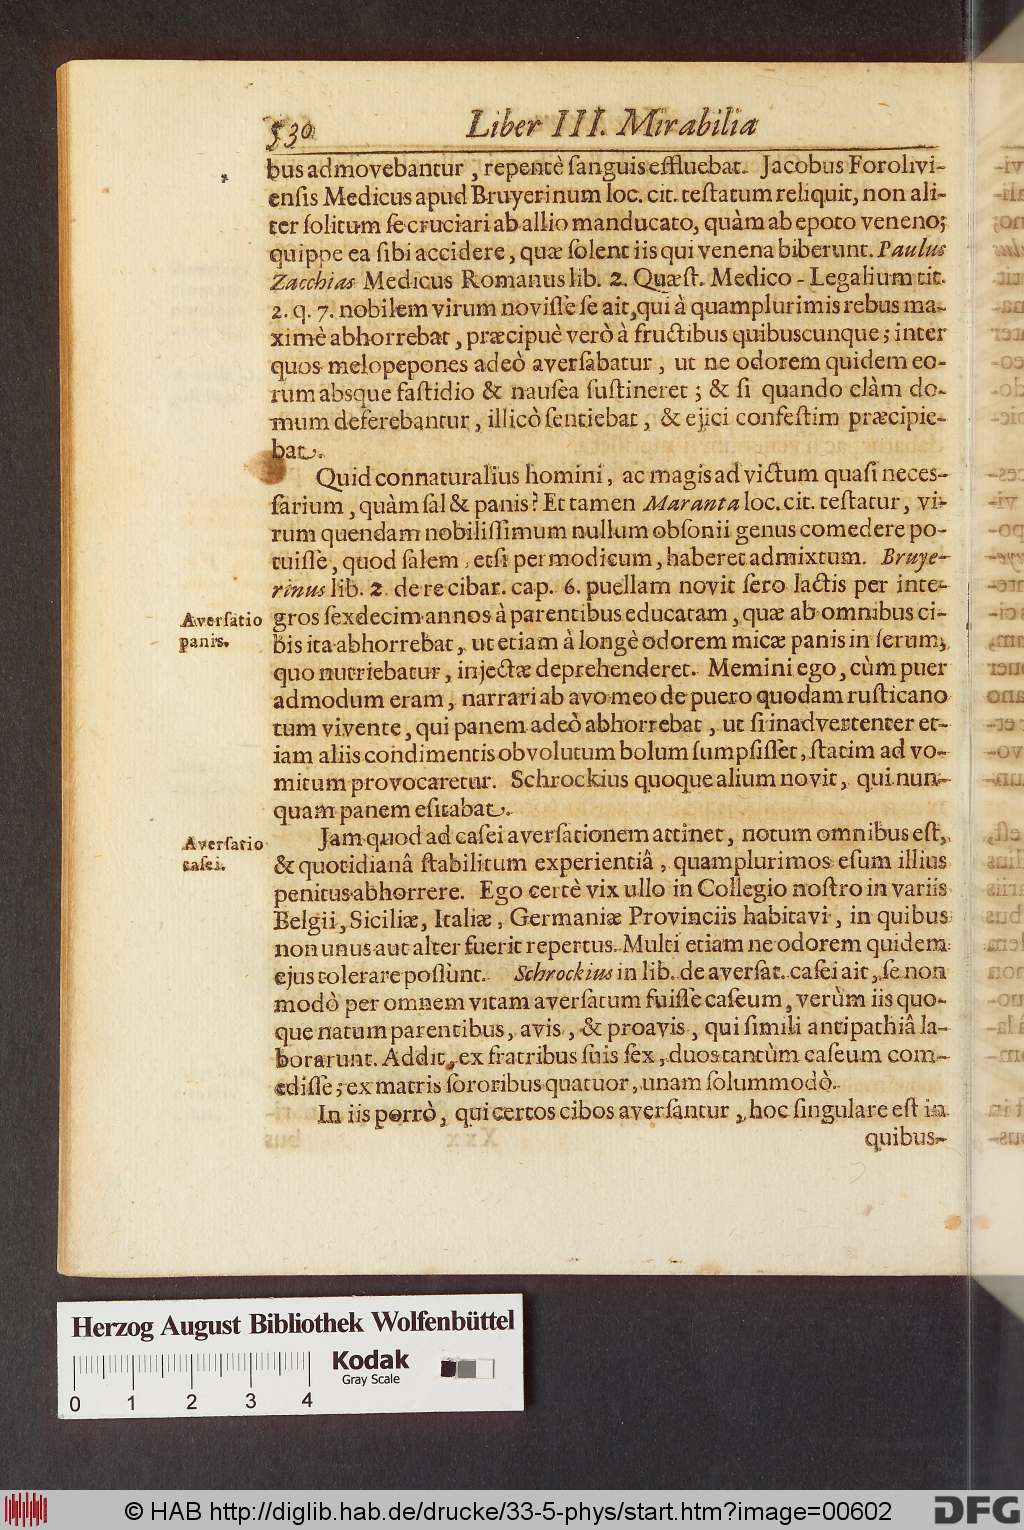 530 Liber III. Mirabilia
bus admovebantur, repentè ſanguis effluebat. Jacobus Forolivi-
enſis Medicus apud Bruyerinum loc. cit. teſtatum reliquit, non ali-
ter ſolitum ſe cruciari ab allio manducato, quàm ab epoto veneno;
quippe ea ſibi accidere, quæ ſolent iis qui venena biberunt. Paulus
Zacchias Medicus Romanus lib. 2. Quæſt. Medico-Legalium tit.
2. q. 7. nobilem virum noviſſe ſe ait, qui à quamplurimis rebus ma-
ximè abhorrebat, præcipuè verò à fructibus quibuscunque; inter
quos melopepones adeò averſabatur, ut ne odorem quidem eo-
rum absque faſtidio & nauſea ſuſtineret; & ſi quando clàm do-
mum deferebantur, illicò ſentiebat, & ejici confeſtim præcipie-
bat.
Quid connaturalius homini, ac magis ad victum quaſi neces-
ſarium, quàm ſal & panis? Et tamen Maranta loc. cit. teſtatur, vi-
rum quendam nobiliſſimum nullum obſonii genus comedere po-
tuiſſe, quod ſalem, etſi permodicum, haberet admixtum. Bruye-
rinus lib. 2. de re cibar. cap. 6. puellam novit ſero lactis per inte-
Averſatio
panis.
gros ſexdecim annos à parentibus educatam, quæ ab omnibus ci-
bis ita abhorrebat, ut etiam à longè odorem micæ panis in ſerum,
quo nutriebatur, injectæ deprehenderet. Memini ego, cùm puer
admodum eram, narrari ab avo meo de puero quodam ruſticano
tum vivente, qui panem adeò abhorrebat, ut ſi inadvertenter et-
iam aliis condimentis obvolutum bolum ſumpſiſſet, ſtatim ad vo-
mitum provocaretur. Schrockius quoque alium novit, qui nun-
quam panem eſitabat.
Averſatio
caſei.
Jam quod ad caſei averſationem attinet, notum omnibus eſt,
& quotidianâ ſtabilitum experientiâ, quamplurimos eſum illius
penitus abhorrere. Ego certè vix ullo in Collegio noſtro in variis
Belgii, Siciliæ, Italiæ, Germaniæ Provinciis habitavi, in quibus
non unus aut alter fuerit repertus. Multi etiam ne odorem quidem
ejus tolerare poſſunt. Schrockius in lib. de averſat. caſei ait, ſe non
modò per omnem vitam averſatum fuiſſe caſeum, verùm iis quo-
que natum parentibus, avis, & proavis, qui ſimili antipathiâ la-
borarunt. Addit, ex fratribus ſuis ſex, duos tantùm caſeum com-
ediſſe; ex matris ſororibus quatuor, unam ſolummodò.
In iis porrò, qui certos cibos averſantur, hoc ſingulare eſt in
quibus-
Herzog August Bibliothek Wolfenbüttel
Kodak
Gray Scale
0 1 2 3 4
© HAB http://diglib.hab.de/drucke/33-5-phys/start.htm?image=00602
DFG